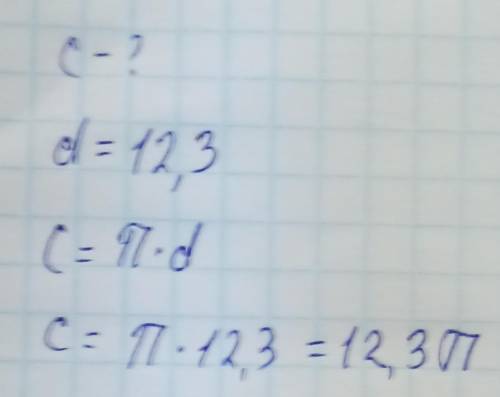 C - ?
d = 12,3
C = π · d
C = π · 12,3 = 12,3π